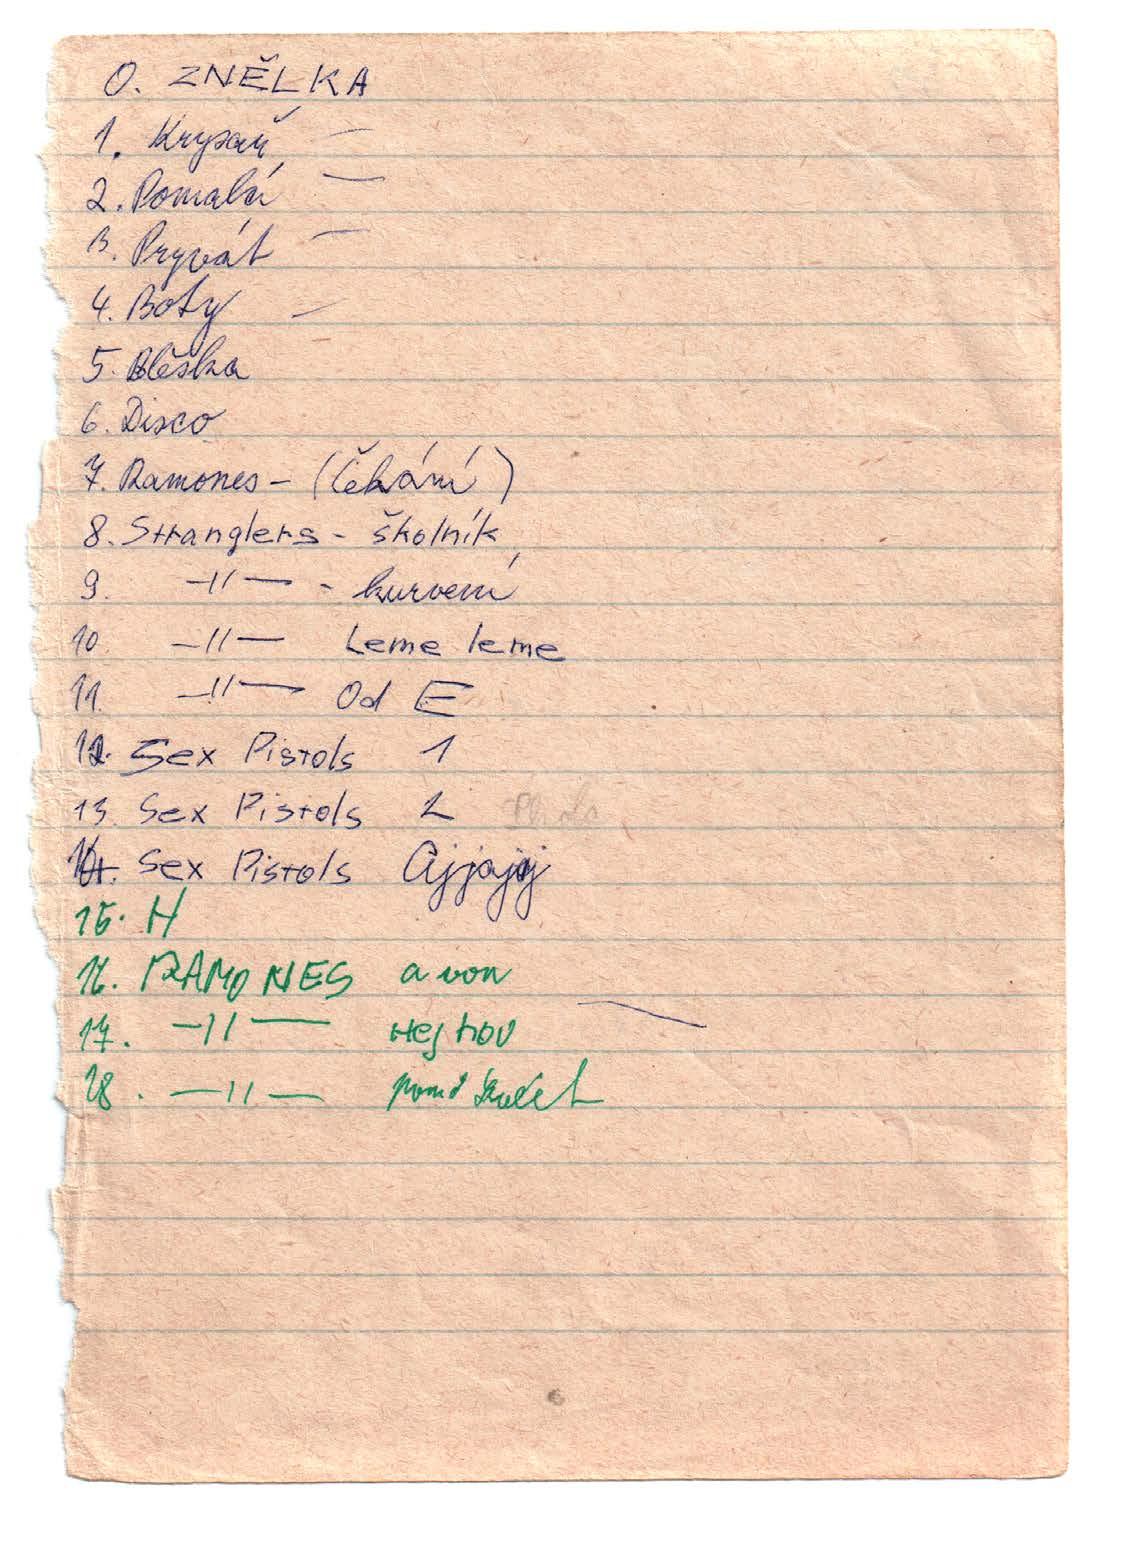 0. ZNĚLKA
1. Krysař —
2. Pomalá —
3. Pryvát —
4. Boty —
5. Bleška
6. Disco
7. Ramones - (čekání)
8. Stranglers - školník
9. —〃— - kurvení
10. —〃— Leme leme
11. —〃— Od E
12. Sex Pistols 1
13. Sex Pistols 2
14. Sex Pistols Ajjajaj
15. H
16. RAMONES a von
17. —〃— Hej hou
18. —〃—